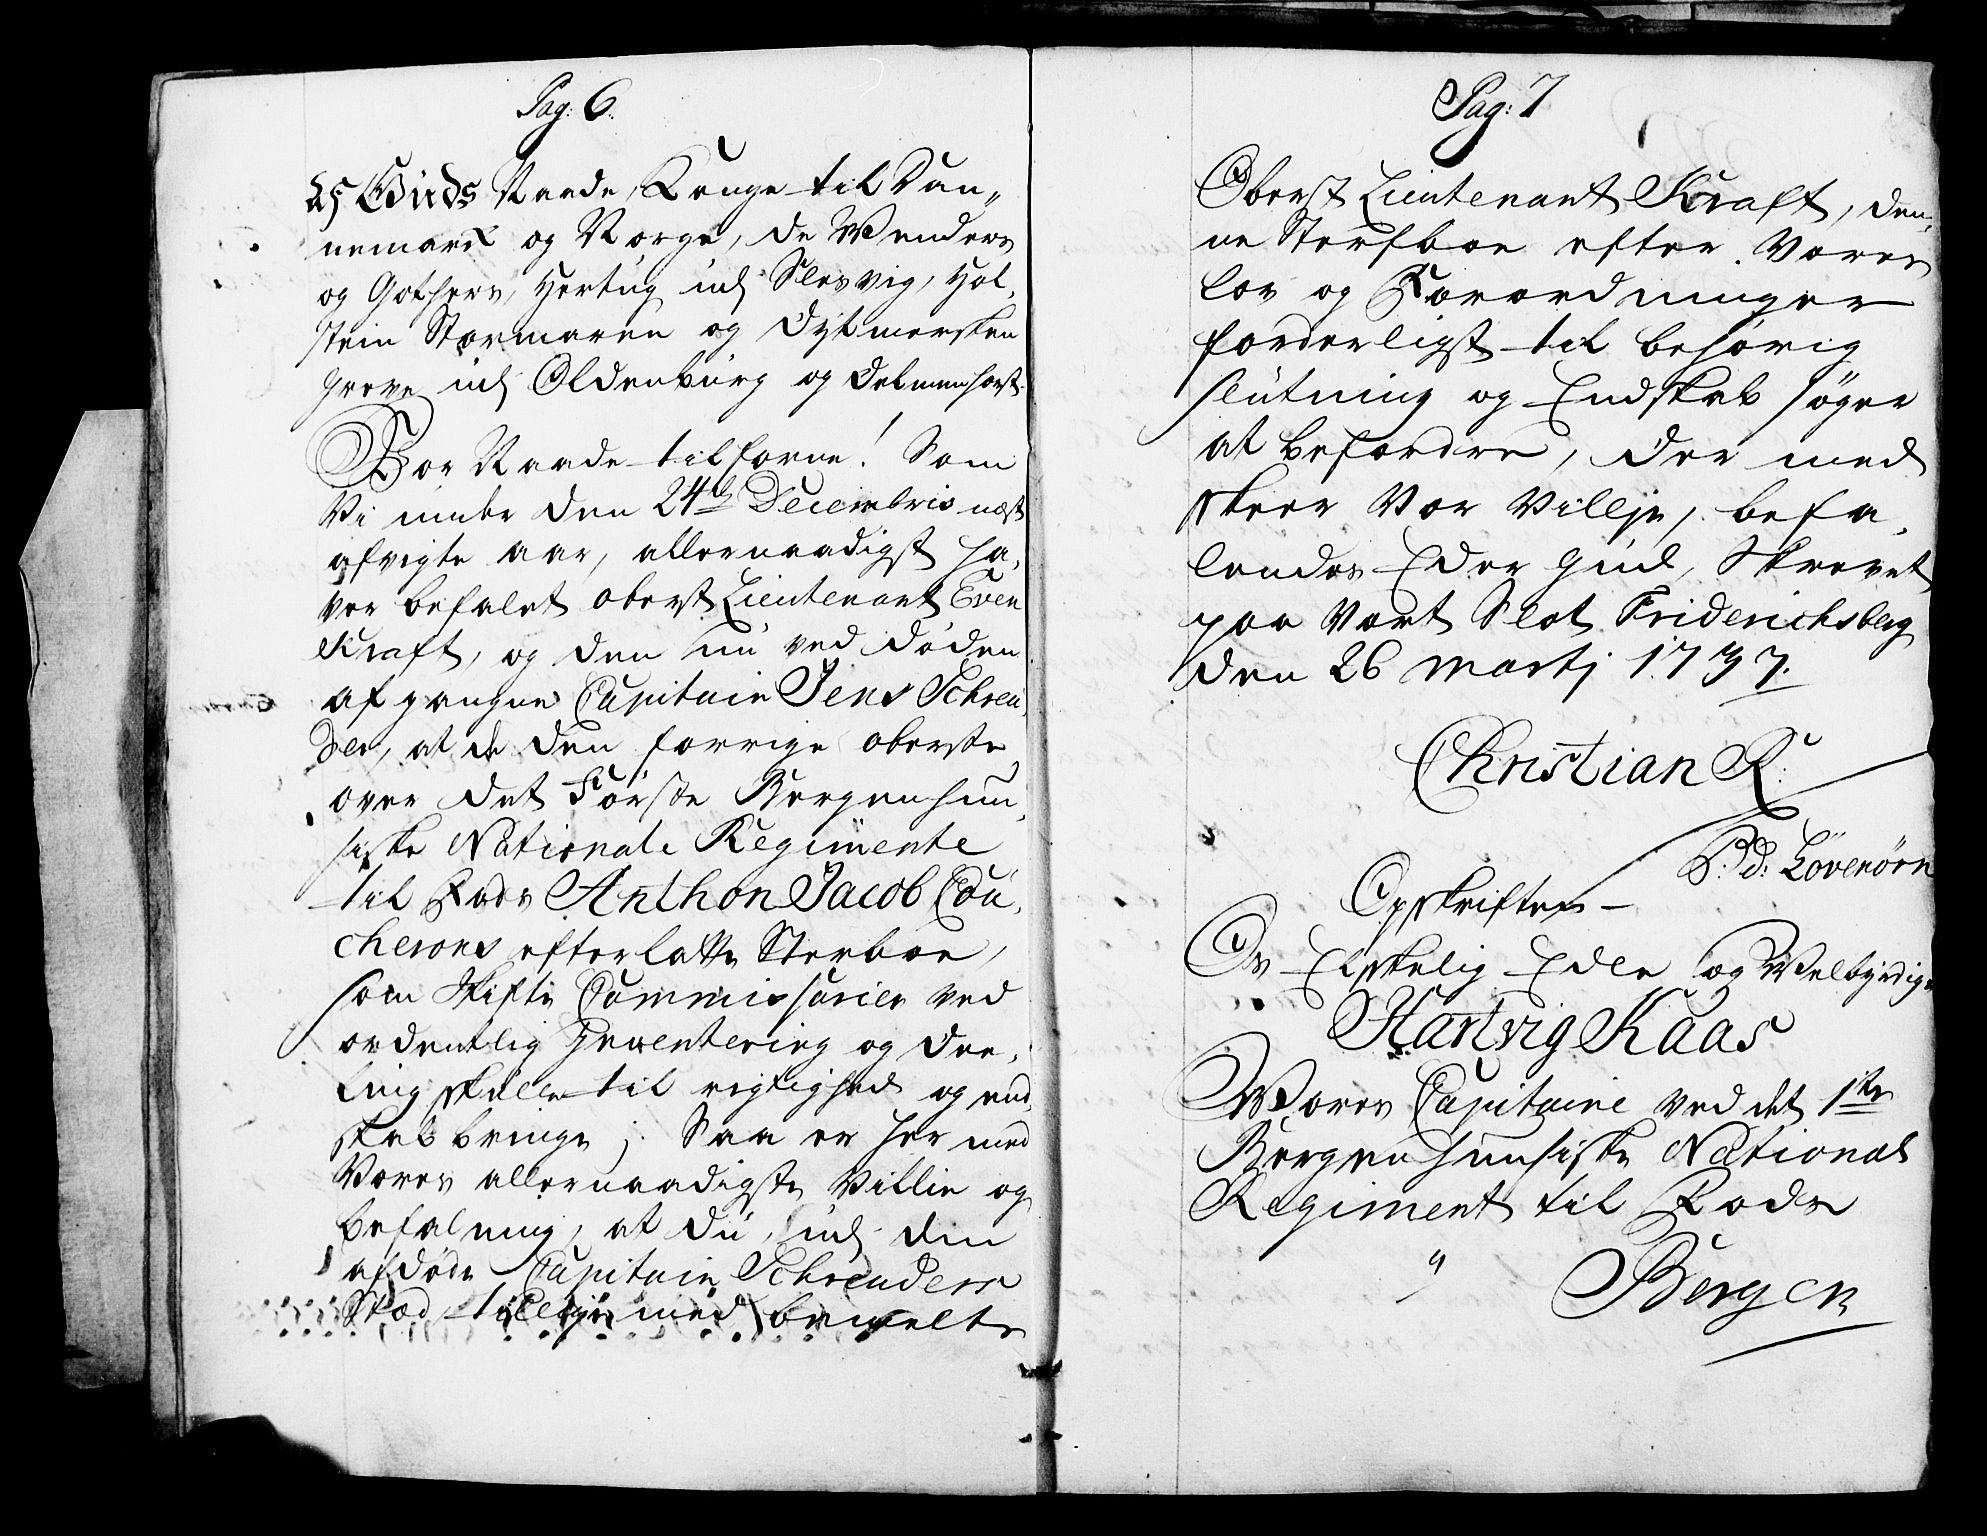 Pag: 6.
Af Guds Naade, Konge til Dan„
nemark og Norge, de Wenders
og Gothers, Hertug udj Slesvig, Hol„
sten Stormaren og Dytmersken
greve udj Oldenburg og Delmenhorst
Vor Naade tilforne! Som
Vi under den 24de Decembris næst
afvigte aar, allernaadigst ha„
ver befalet oberst Lieutenant Even
Kraft, og den nu ved døden
af gangne Capitain Jens Schreu„
der, at de den forrige oberste
over det Første Bergenhuu„
siske Nationale Regimente
til Fods Anthon Jacob Cou„
cherons efterlatte Sterboe,
som Skifte Commissarier ved
ordentlig Inventering og dee„
ling skulle til rigtighed og end„
skab bringe; Saa er her med
Vores allernaadigste Villie og
befalning, at du, udj den
afdøde Capitain Schreuders
Stæd tillige med bemelte
Pag: 7
Oberst Lieutenant Kraft, den„
ne Sterfboe efter Vores
lov og Forordninger
forderligst til behørig
slutning og Endskab søger
at befordre, der med
skeer Vor Villje, befa„
lendes Eder Gud, Skrevet
paa Vort Slot Friderichsberg
den 26 Martj 1737.
Christian R:
P: d: Lövenörn
Opskriften
Os Elskelig Edle og Welbyrdige
Hartvig Kaas
Wores Capitaine ved det 1ste
Bergenhuusiske National
Regiment til Fods
"
Bergen